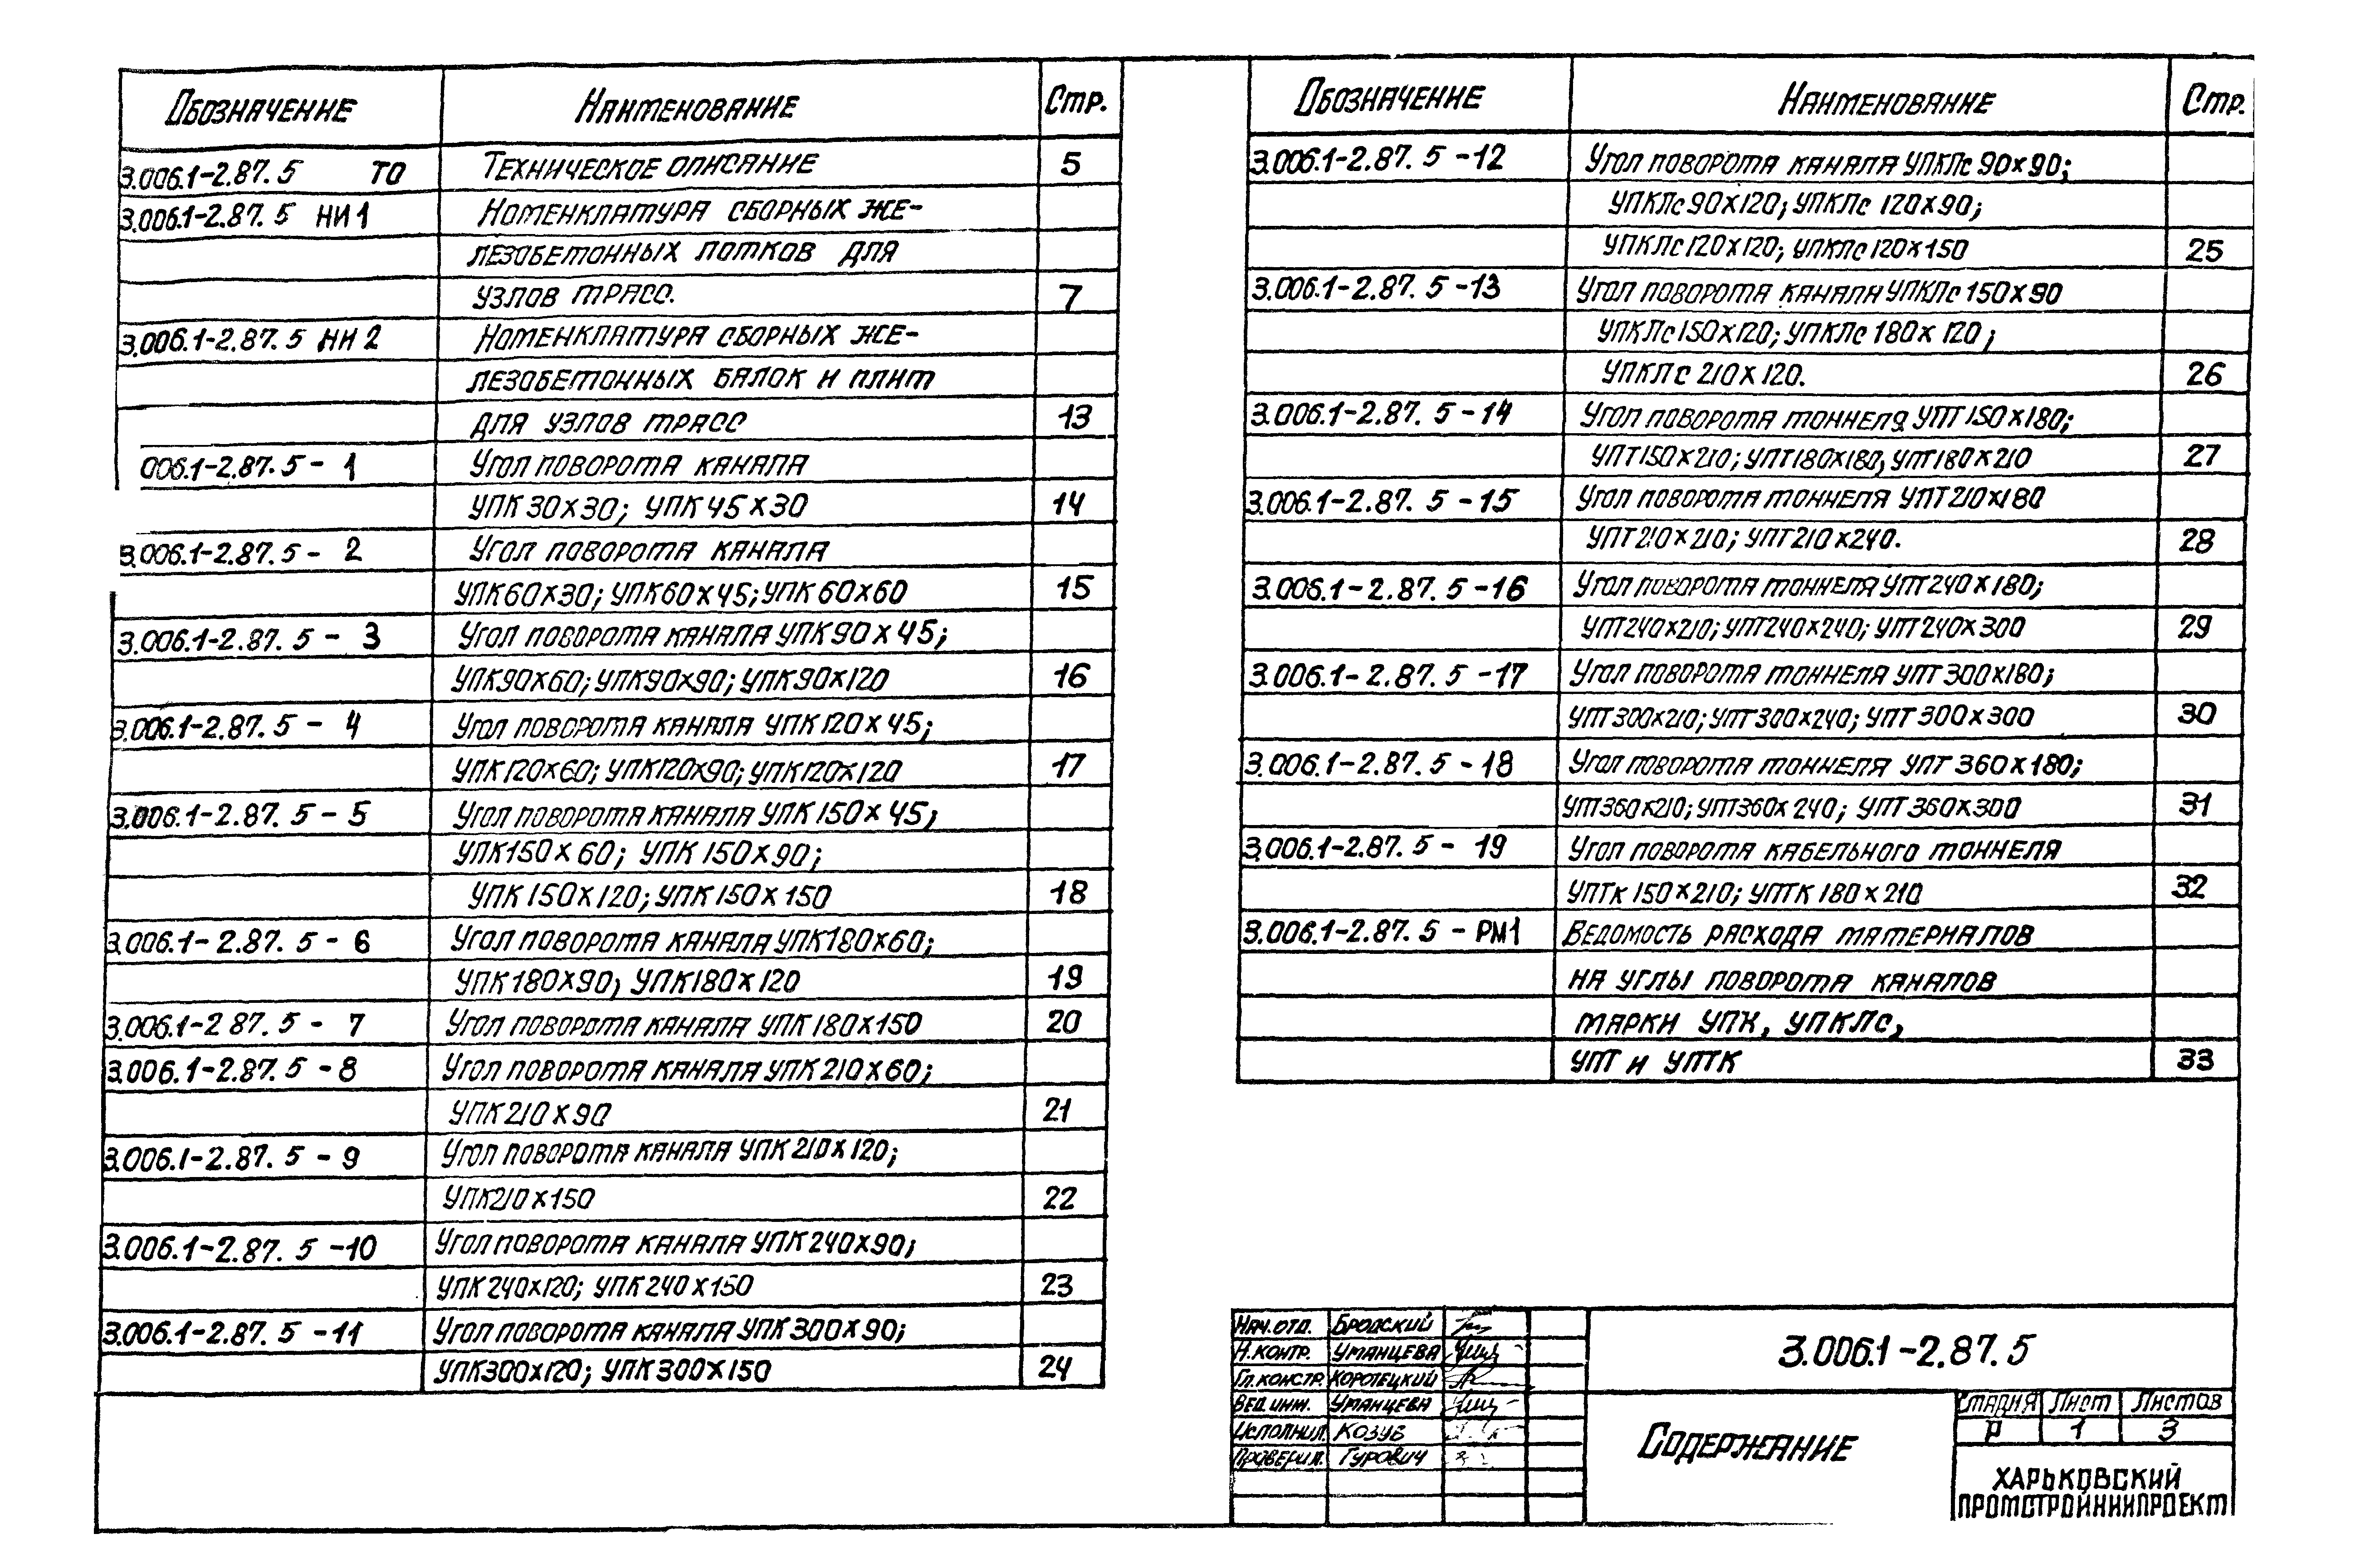 Обозначение Наименование Стр.
3.006.1-2.87. 5 ТО Техническое описание 5
3.006.1-2.87. 5 НИ 1 Номенклатура сборных же-
лезобетонных лотков для
узлов трасс. 7
3.006.1-2.87. 5 НИ 2 Номенклатура сборных же-
лезобетонных балок и плит
для узлов трасс 13
006.1-2.87. 5 - 1 Угол поворота канала
УПК 30х30; УПК 45х30 14
3.006.1-2.87. 5 - 2 Угол поворота канала
УПК60х30; УПК60х45; УПК 60х60 15
3.006.1-2.87. 5 - 3 Угол поворота канала УПК90х45;
УПК90х60; УПК90х90; УПК90х120 16
3.006.1-2.87. 5 - 4 Угол поворота канала УПК120х45;
УПК120х60; УПК120х90; УПК120х120 17
3.006.1-2.87. 5 - 5 Угол поворота канала УПК 150х45;
УПК150х60; УПК 150х90;
УПК 150х120; УПК 150х150 18
3.006.1-2.87. 5 - 6 Угол поворота канала УПК180х60;
УПК180х90; УПК180х120 19
3.006.1-2 87. 5 - 7 Угол поворота канала УПК 180х150 20
3.006.1-2.87. 5 - 8 Угол поворота канала УПК 210х60;
УПК210х90 21
3.006.1-2.87. 5 - 9 Угол поворота канала УПК 210х120;
УПК210х150 22
3.006.1-2.87. 5 -10 Угол поворота канала УПК240х90;
УПК 240х120; УПК 240х150 23
3.006.1-2.87. 5 -11 Угол поворота канала УПК 300х90;
УПК300х120; УПК 300х150 24
Обозначение Наименование Стр.
3.006.1-2.87. 5 -12 Угол поворота канала УПКЛс 90х90;
УПКЛс90х120; УПКЛс 120х90;
УПКЛс120х120; УПКЛс120х150 25
3.006.1-2.87. 5 -13 Угол поворота канала УПКЛс 150х90
УПКЛс150х120; УПКЛс 180х120;
УПКЛс 210х120. 26
3.006.1-2.87. 5 -14 Угол поворота тоннеля УПТ 150х180;
УПТ150х210; УПТ180х180, УПТ180х210 27
3.006.1-2.87. 5 -15 Угол поворота тоннеля УПТ210х180
УПТ210х210; УПТ210х240. 28
3.006.1-2.87. 5 -16 Угол поворота тоннеля УПТ240х180;
УПТ240х210; УПТ240х240; УПТ240х300 29
3.006.1-2.87. 5 -17 Угол поворота тоннеля УПТ 300х180;
УПТ300х210; УПТ300х240; УПТ300х300 30
3.006.1-2.87. 5 -18 Угол поворота тоннеля УПТ 360х180;
УПТ360х210; УПТ360х240; УПТ360х300 31
3.006.1-2.87. 5 - 19 Угол поворота кабельного тоннеля
УПТк 150х210; УПТК 180х210 32
3.006.1-2.87. 5 - РМ1 Ведомость расхода материалов
на углы поворота каналов
марки УПК, УПКЛс,
УПТ и УПТК 33
Нач.отд. Бродский
Н.контр. Уманцева
Гл.констр Коротецкий
Вед.инж. Уманцева
Исполнил. Козуб
Проверил. Гурович
3.006.1-2.87. 5
Содержание
Стадия Лист Листов
Р 1 3
ХАРЬКОВСКИЙ
ПРОМСТРОЙНИИПРОЕКТ